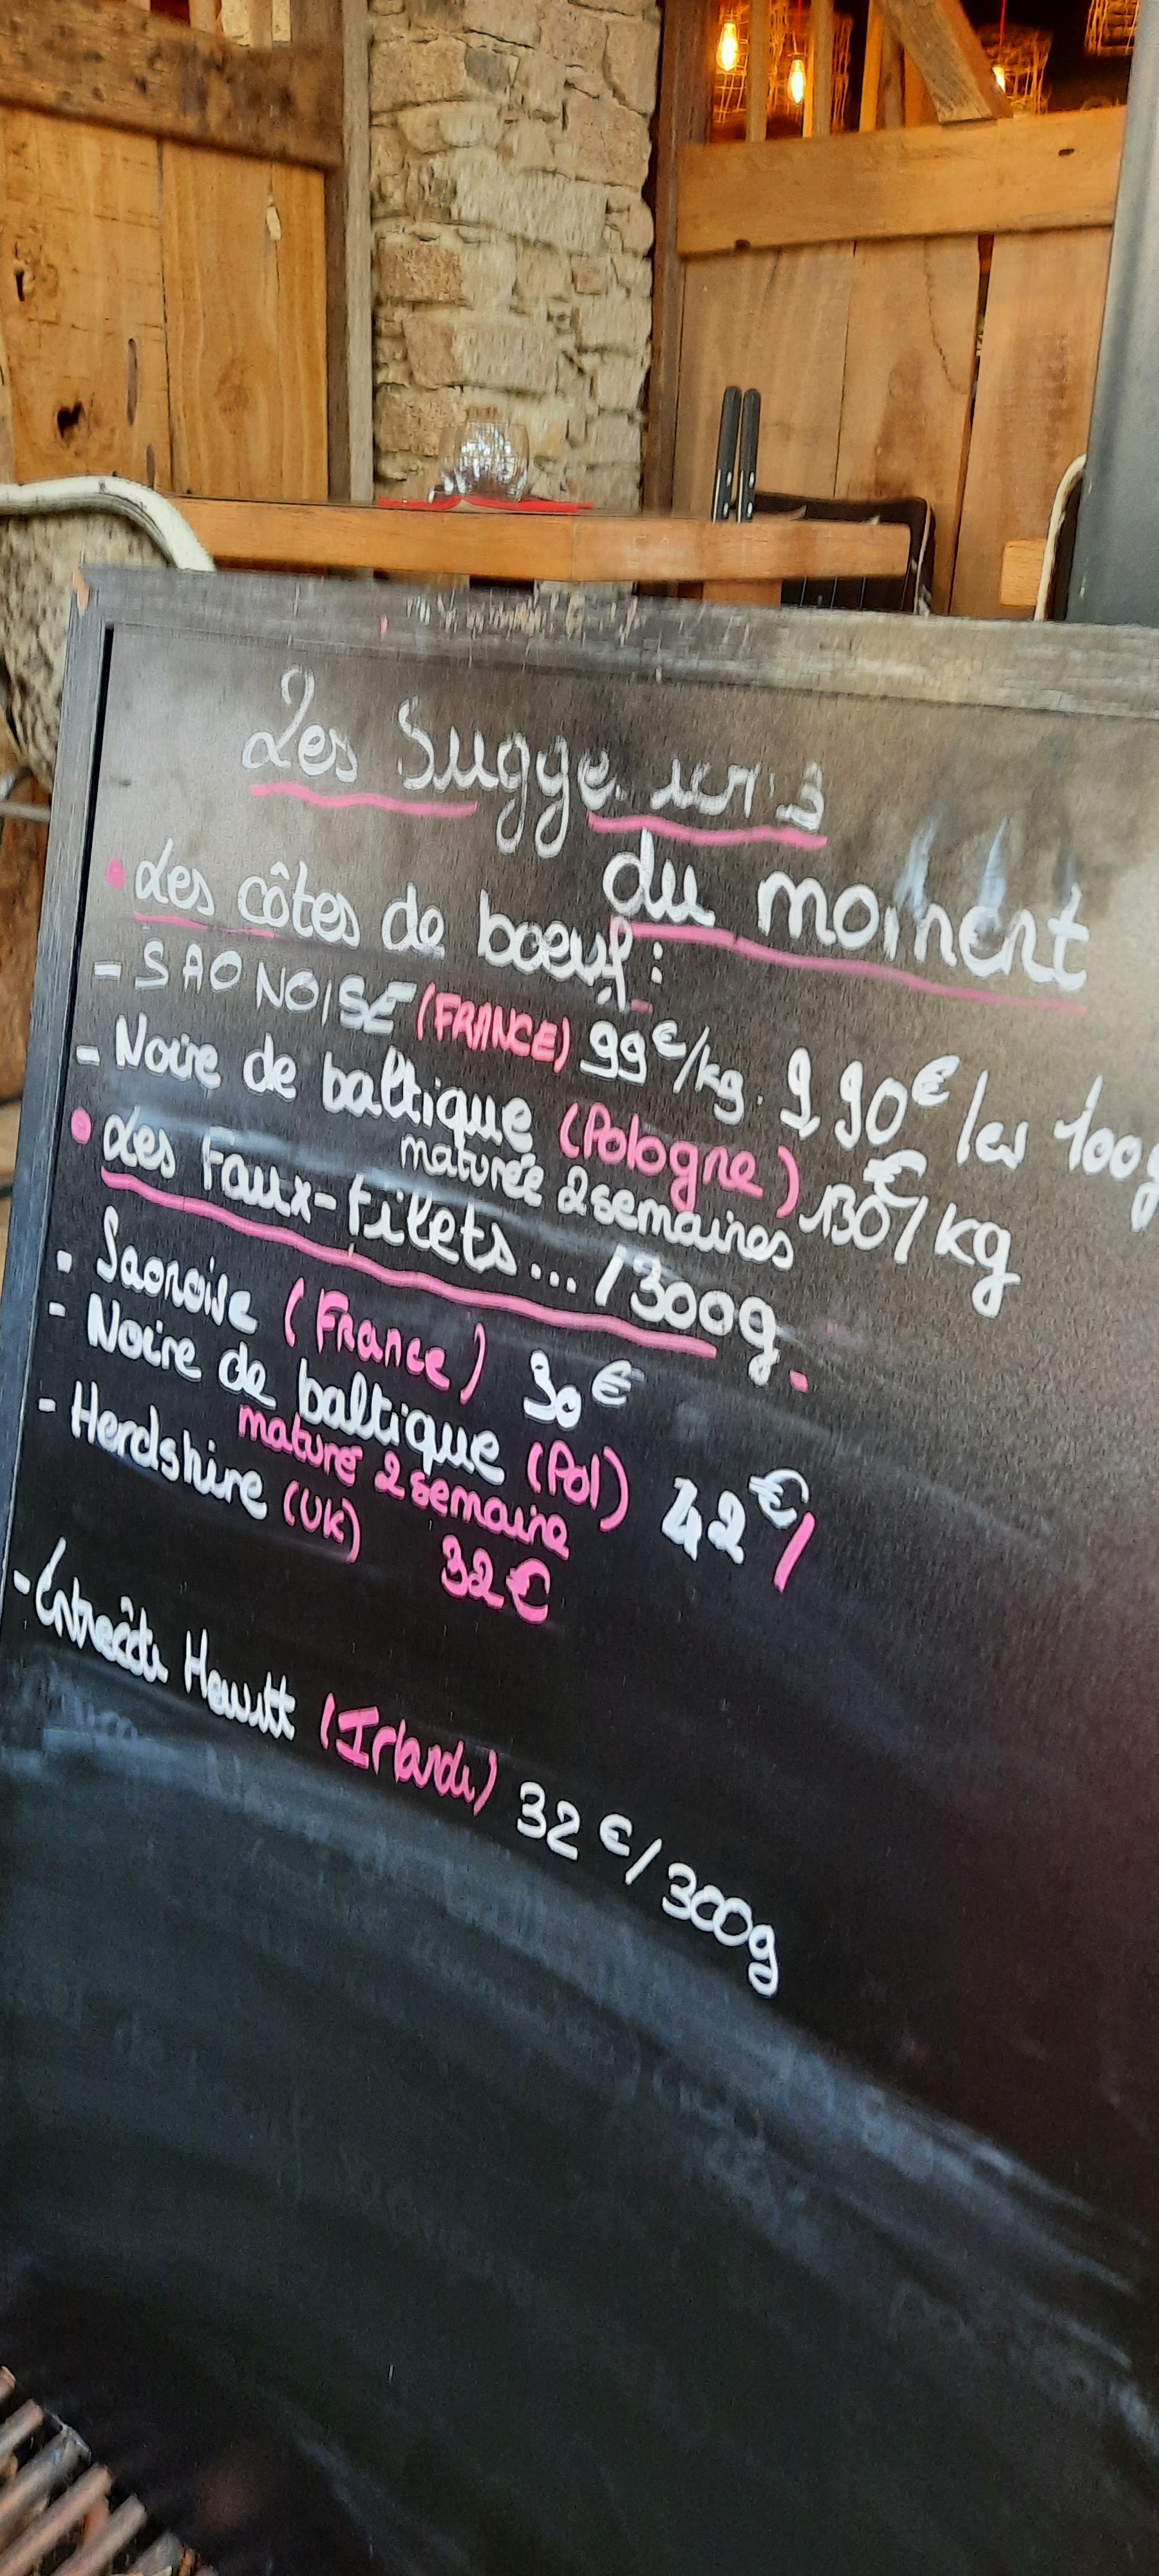 Les Sugge
du moment
• Les côtes de boeuf :
- SAONOISE (FRANCE) 99€/kg. 9,90€/les 100g
- Noire de baltique (Pologne) 130€/kg
maturée 2 semaines
• Les Faux-filets... /300g.
- Saonoise (France) 30€
- Noire de baltique (Pol) 42€/
maturé 2 semaine
- Herdshire (UK) 32€
- Entrecôte Hewitt (Irlande) 32€/300g